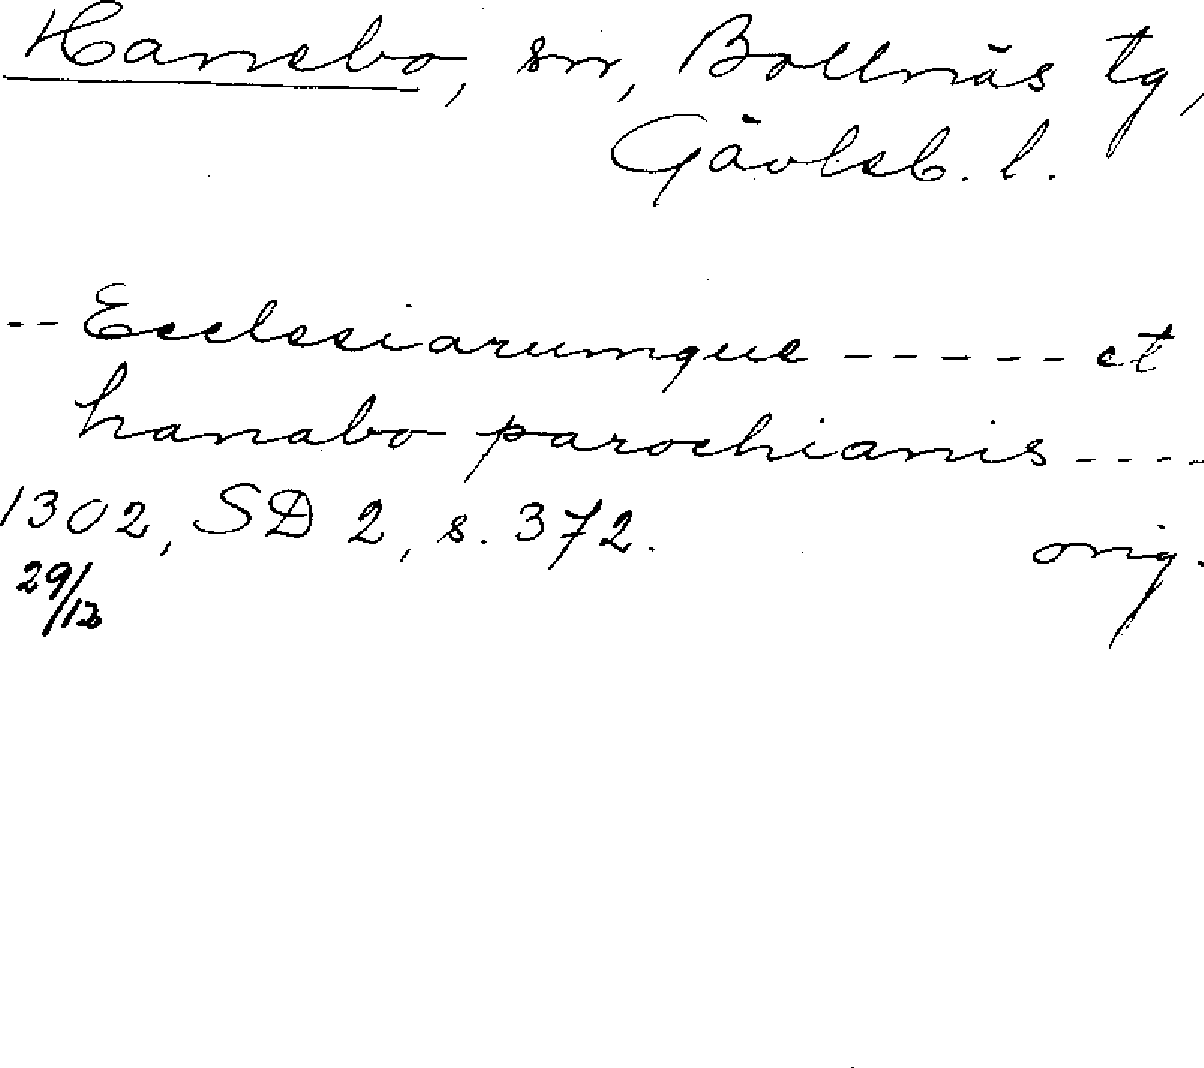 Hanebo, sn, Bollnäs tg,
Gävleb. l.
-- Ecclesiarumque ----- et
hanabo parochianis ----
1302, SD 2, s. 372. orig.
29/12